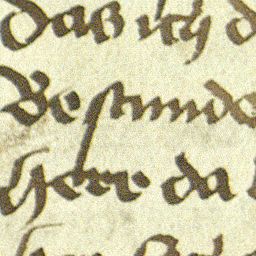 das ich d
Bestunde
here da